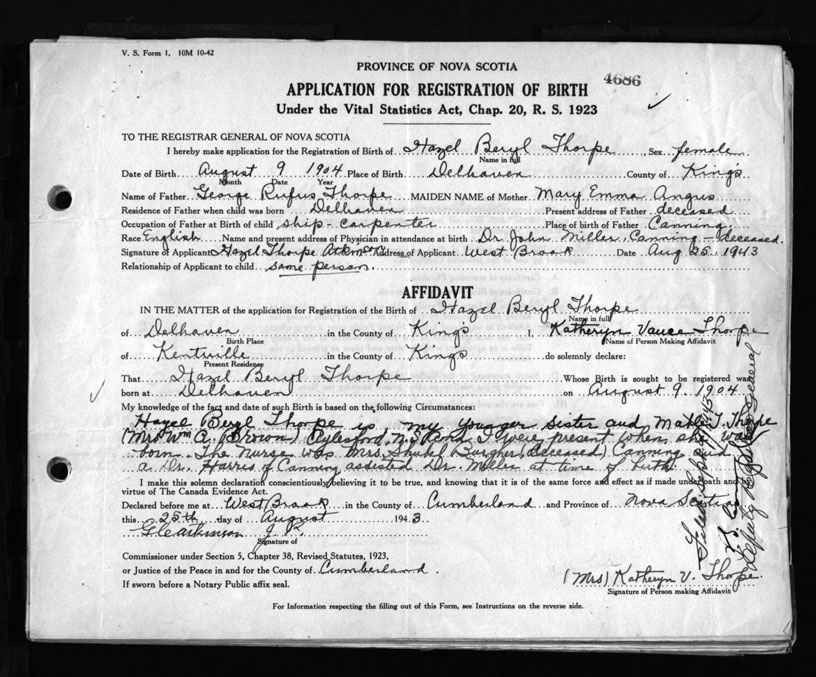 V. S. Form 1. 10M 10-42
PROVINCE OF NOVA SCOTIA
4686
APPLICATION FOR REGISTRATION OF BIRTH
Under the Vital Statistics Act, Chap. 20, R. S. 1923
TO THE REGISTRAR GENERAL OF NOVA SCOTIA
I hereby make application for the Registration of Birth of Hazel Beryl Thorpe Sex female
Name in full
Date of Birth August 9 1904 Place of Birth Delhaven County of Kings
Month Date Year
Name of Father George Rufus Thorpe MAIDEN NAME of Mother Mary Emma Angus
Residence of Father when child was born Delhaven Present address of Father deceased
Occupation of Father at Birth of child ship-carpenter Place of birth of Father Canning
Race English Name and present address of Physician in attendance at birth Dr. John Miller, Canning - deceased.
Signature of Applicant Hazel Thorpe Atkinson Address of Applicant West Brook Date Aug 25 1943
Relationship of Applicant to child same person.
AFFIDAVIT
IN THE MATTER of the application for Registration of the Birth of Hazel Beryl Thorpe
Name in full
of Delhaven in the County of Kings I, Katheryn Vance Thorpe
Birth Place Name of Person Making Affidavit
of Kentville in the County of Kings do solemnly declare:
Present Residence
That Hazel Beryl Thorpe Whose Birth is sought to be registered was
born at Delhaven on August 9 1904
My knowledge of the fact and date of such Birth is based on the following Circumstances:
Hazel Beryl Thorpe is my younger sister and T. Thorpe
(Mrs Wm A. Brown) Aylesford, N.S. and I were present when she was
born. The nurse was Mrs. (deceased) Canning and
a Dr. Harris of Canning assisted Dr. Miller at time of birth
I make this solemn declaration conscientiously believing it to be true, and knowing that it is of the same force and effect as if made under oath and
virtue of The Canada Evidence Act.
Declared before me at West Brook in the County of Cumberland and Province of Nova Scotia
this 25th day of August 1943
G C Atkinson J. P.
Signature of
Commissioner under Section 5, Chapter 38, Revised Statutes, 1923,
or Justice of the Peace in and for the County of Cumberland.
If sworn before a Notary Public affix seal.
(Mrs) Katheryn V. Thorpe.
Signature of Person making Affidavit
For Information respecting the filling out of this Form, see Instructions on the reverse side.
Filed Sept
Deputy Registrar General